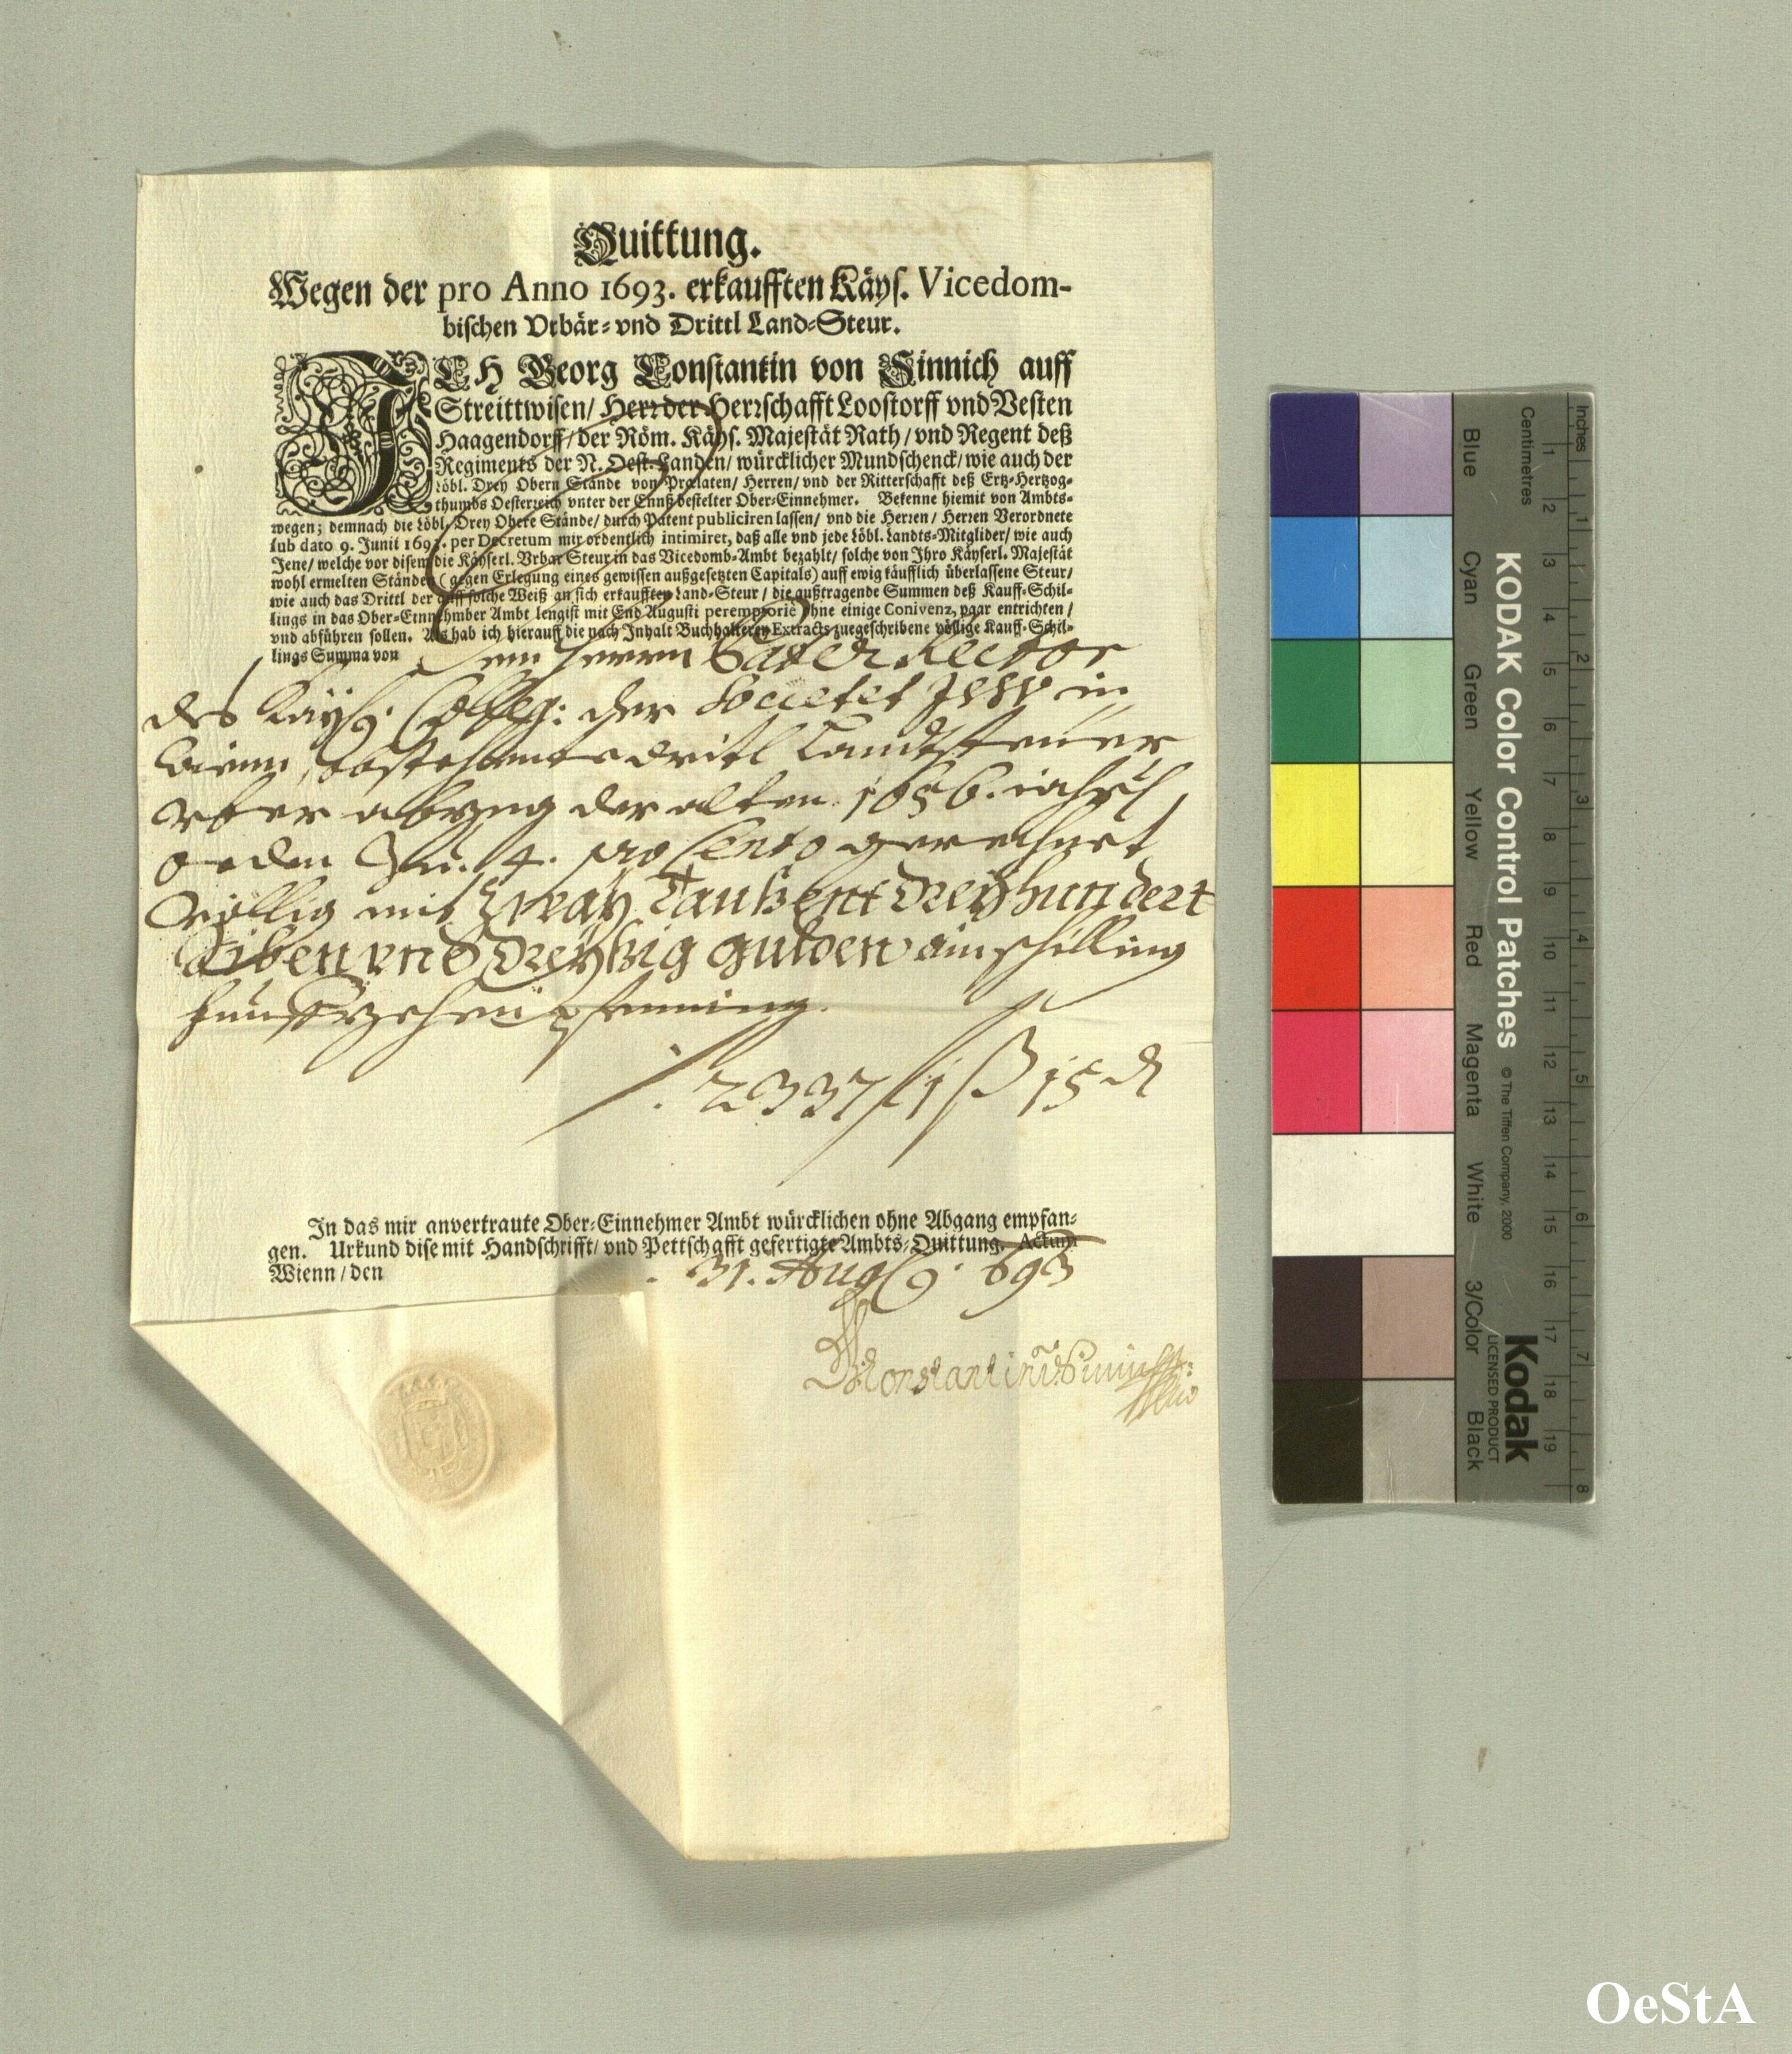 Quittung.
Wegen der pro Anno 1693. erkaufften Käys. Vicedom-
bischen Vrbär- vnd Drittl Land-Steur.
ICH Georg Constantin von Sinnich auff
Streittwisen/ Herr der Herrschafft Loostorff vnd Vesten
Haagendorff/ der Röm. Käys. Majestät Rath/ vnd Regent deß
Regiments der N. Oest. Landen/ würcklicher Mundschenck/ wie auch der
Löbl. Drey Obern Stände von Prælaten/ Herren/ vnd der Ritterschafft deß Ertz-Hertzog-
thumbs Oesterreich vnter der Ennß bestelter Ober-Einnehmer. Bekenne hiemit von Ambts-
wegen; demnach die Löbl. Drey Obere Stände/ durch Patent publiciren lassen/ vnd die Herren/ Herren Verordnete
sub dato 9. Junii 1693. per Decretum mir ordentlich intimiret, daß alle vnd jede Löbl. Landts-Mitglider/ wie auch
Jene/ welche vor disem die Käyserl. Vrbar Steur in das Vicedomb-Ambt bezahlt/ solche von Ihro Käyserl. Majestät
wohl ermelten Ständen (gegen Erlegung eines gewissen außgesetzten Capitals) auff ewig käufflich überlassene Steur/
wie auch das Drittl der auff solche Weiß an sich erkaufften Land-Steur/ die außtragende Summen deß Kauff-Schil-
lings in das Ober-Einnehmber Ambt lengist mit End Augusti peremptoriè ohne einige Conivenz, paar entrichten/
vnd abführen sollen. Als hab ich hierauff die nach Inhalt Buchhalterey Extracts zuegeschribene völlige Kauff-Schil-
lings Summa von dem Herrn Pater Rector
des Kayß: Colleg: der Societet Jesu in
Wienn, dritl Landtsteuer
yber abzug der alten 1656.
zu 4. pro Cento gerechnet
völlig mit Zway Taußent Dreyhundert
Siben vnd Dreyßig gulden ain schilling
funffzehen pfenning.
2337 f 1 ß 15 d
In das mir anvertraute Ober-Einnehmer Ambt würcklichen ohne Abgang empfan-
gen. Urkund dise mit Handschrifft/ vnd Pettschafft gefertigte Ambts-Quittung. Actum
Wienn/ den 31. Aug: 693
Constantin v. Sinnich
Inches
Centimetres
1 2 3 4 5 6 7 8 9 10 11 12 13 14 15 16 17 18 19
1 2 3 4 5 6 7 8
KODAK Color Control Patches
© The Tiffen Company, 2000
Kodak
LICENSED PRODUCT
Blue Cyan Green Yellow Red Magenta White 3/Color Black
OeStA